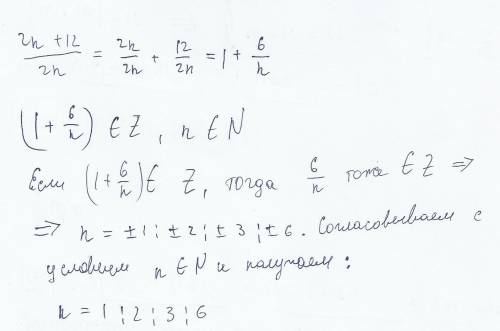 (2n + 12)/(2n) = 2n/2n + 12/2n = 1 + 6/n
(1 + 6/n) ∈ Z, n ∈ N
Если (1 + 6/n) ∈ Z, тогда 6/n тоже ∈ Z ⇒
⇒ n = ±1; ±2; ±3; ±6. Согласовываем с
условием n ∈ N и получаем:
n = 1; 2; 3; 6